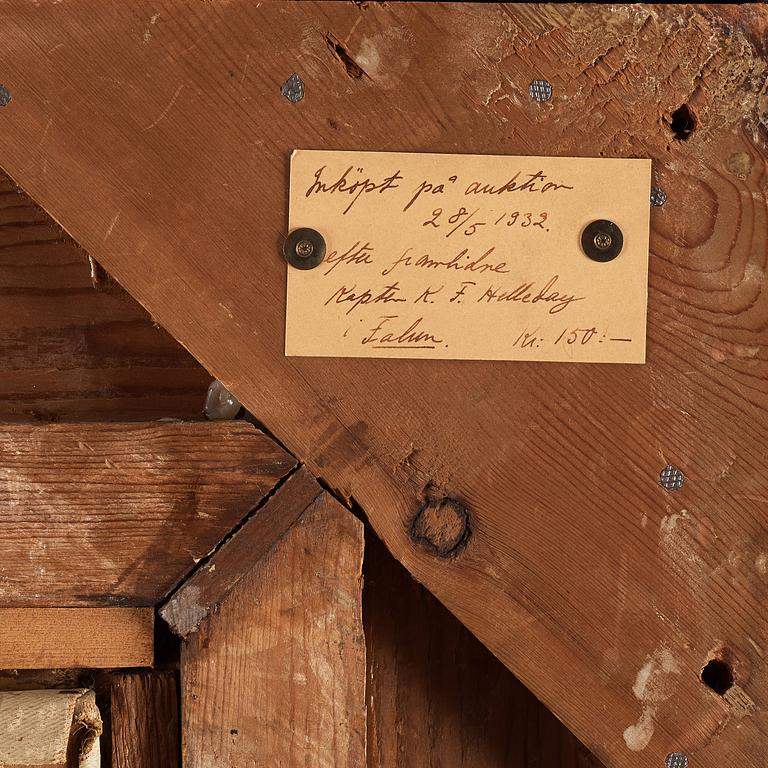 Inköpt på auktion
28/5 1932.
efter framlidne
Kapten K. F. Helleday
i Falun. Kr: 150:—